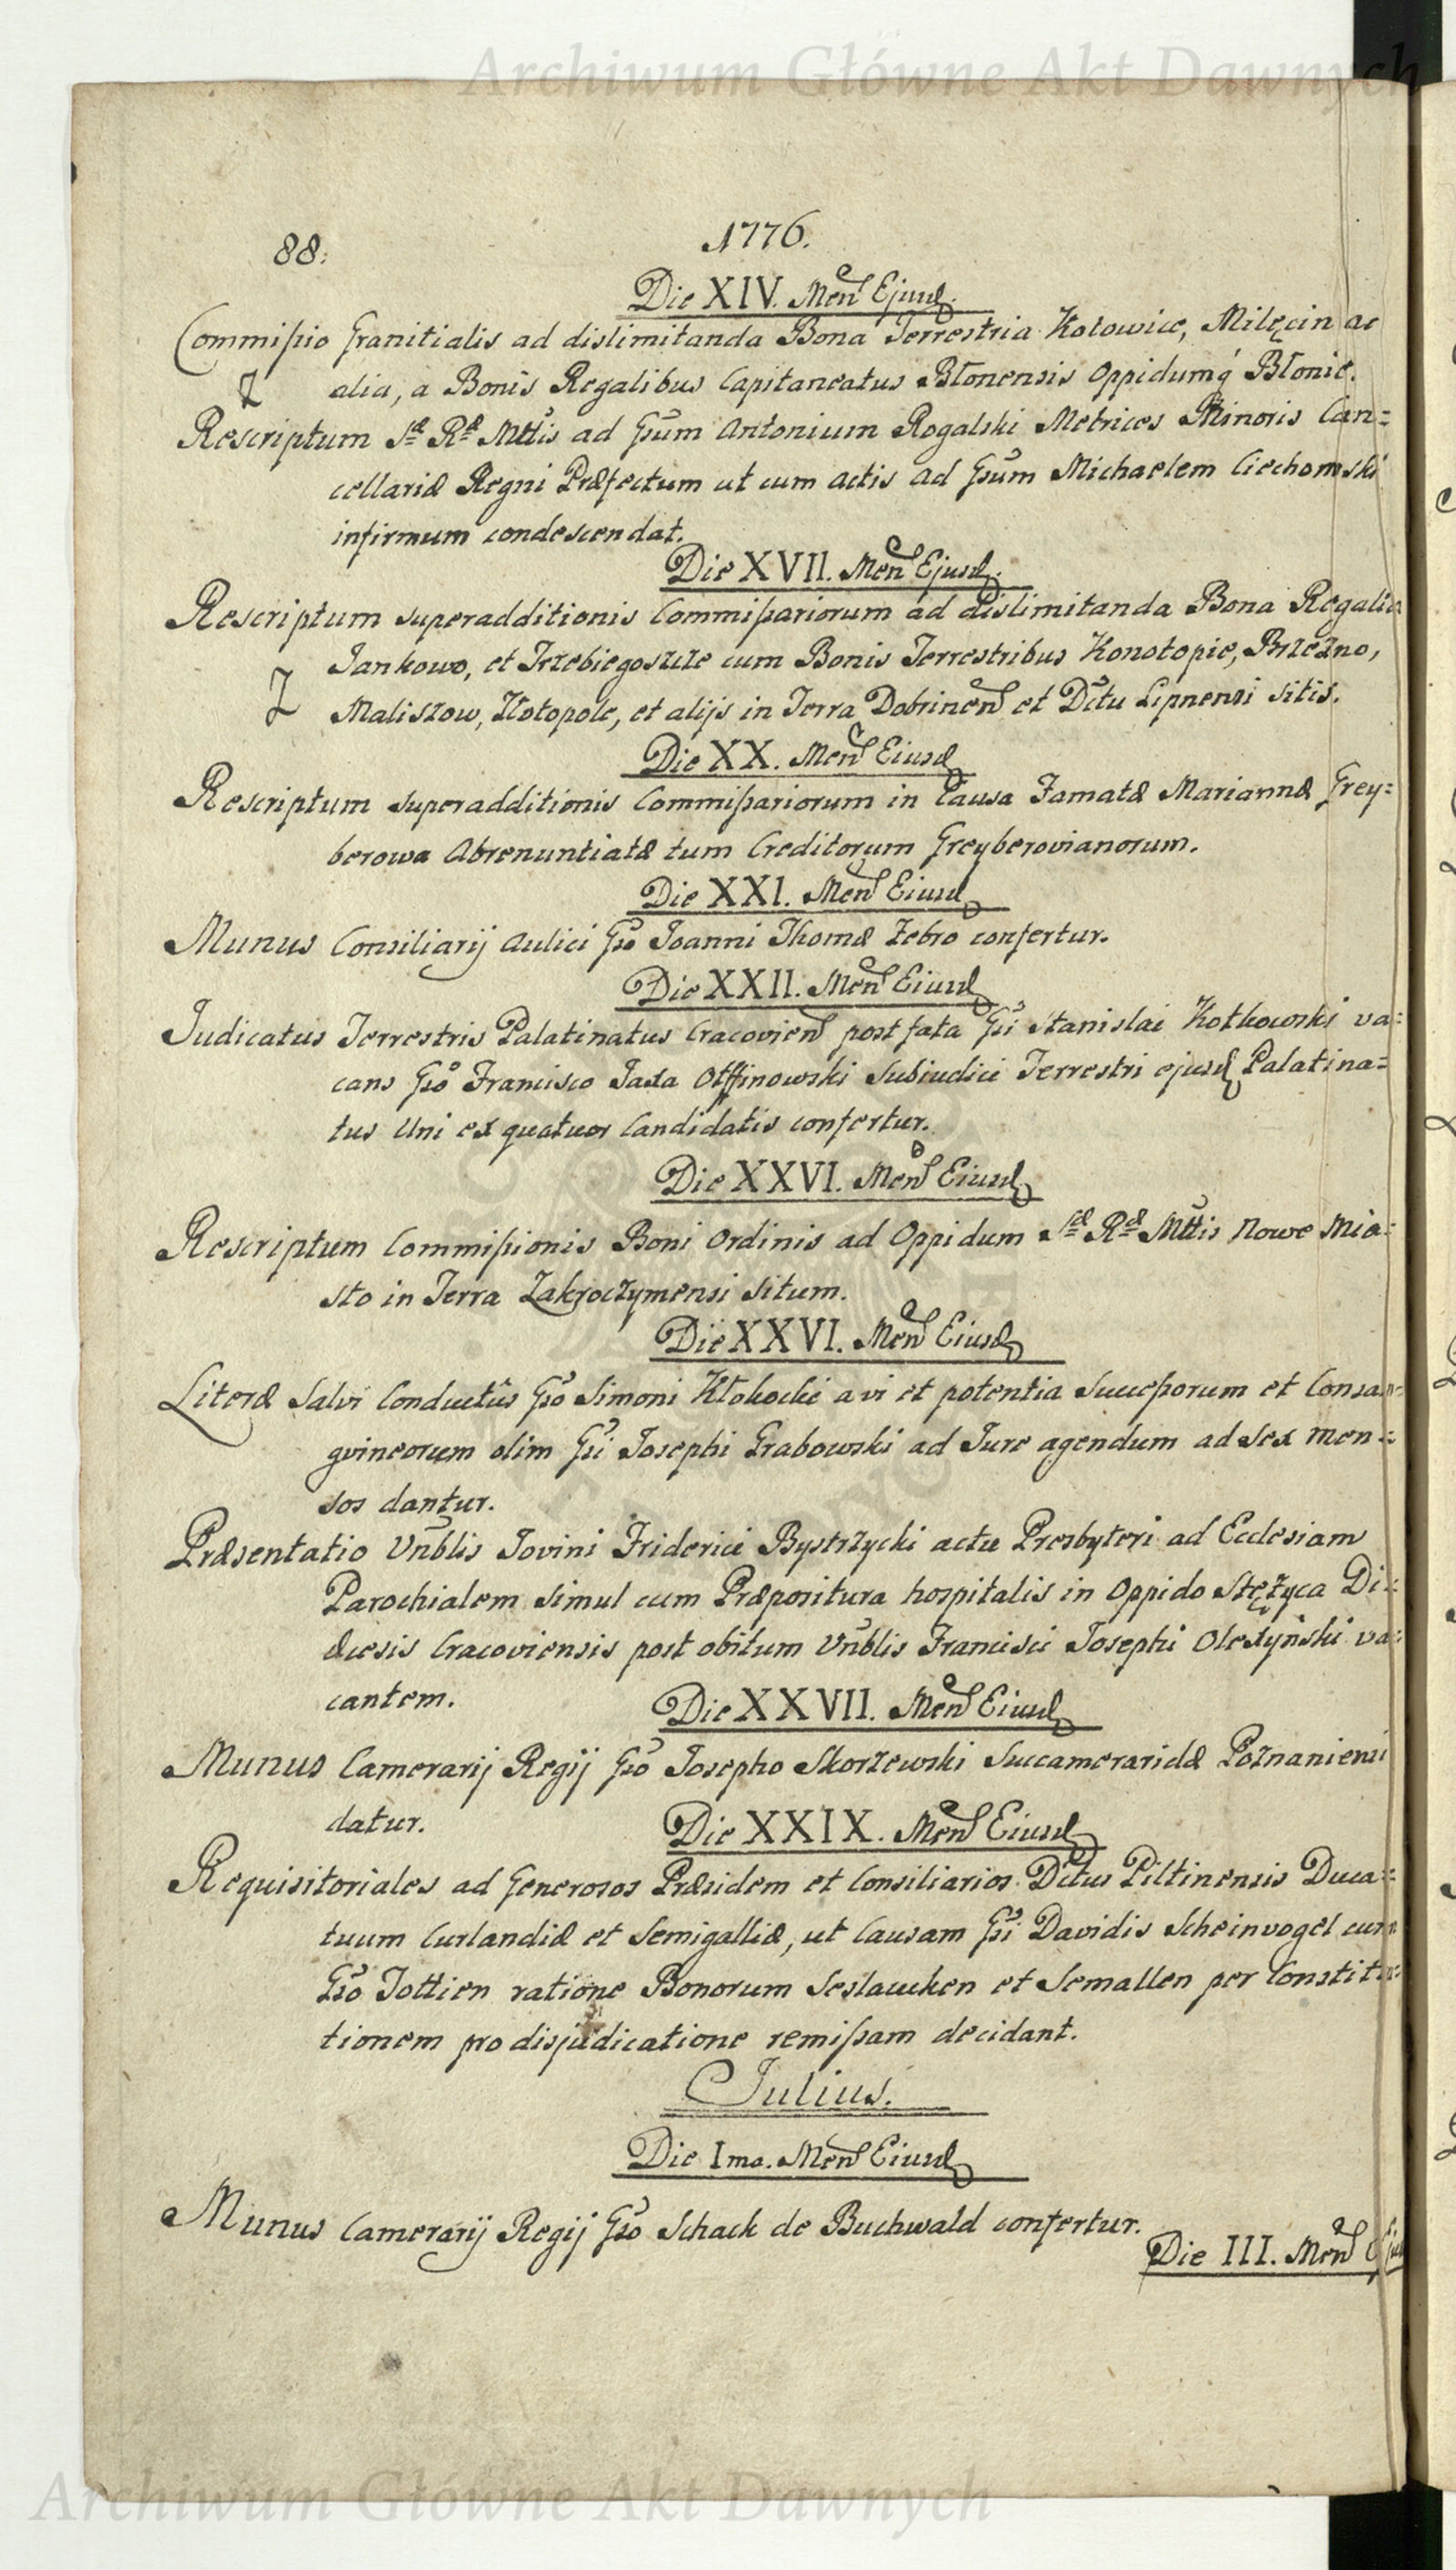 Archiwum Główne Akt Dawnych
88.
1776.
Die XIV. Men Ejusd.
Commissio Granitialis ad dislimitanda Bona Terrestria Kotowice, Milęcin ac
alia, a Bonis Regalibus Capitaneatus Błonensis Oppidumq́ Błonie.
Rescriptum Sæ Ræ Mttis ad Gsum Antonium Rogalski Metrices Minoris Can=
cellariæ Regni Præfectum ut cum actis ad Gsum Michaelem Ciechomski
infirmum condescendat.
Die XVII. Men Ejusd.
Rescriptum superadditionis Commissariorum ad dislimitanda Bona Regalia
Jankowo, et Trzebiegoszcze cum Bonis Terrestribus Konotopie, Brzezno,
Maliszow, Złotopole, et alijs in Terra Dobrinen et Dctu Lipnensi sitis.
Die XX. Men Eiusd
Rescriptum superadditionis Commissariorum in Causa Famatæ Mariannæ Grey=
berowa Abrenuntiatæ tum Creditorum Greyberovianorum.
Die XXI. Men Eiusd
Munus Consiliarij Aulici Gso Joanni Thomæ Zebro confertur.
Die XXII. Men Eiusd
Judicatus Terrestris Palatinatus Cracovien post fata Gsi Stanislai Kotkowski va=
cans Gso Francisco Jaxa Otffinowski Subiudici Terrestri ejusd Palatina=
tus Uni ex quatuor Candidatis confertur.
Die XXVI. Men Eiusd
Rescriptum Commissionis Boni Ordinis ad Oppidum Sæ Ræ Mttis Nowe Mia=
sto in Terra Zakroczymensi situm.
Die XXVI. Men Eiusd
Literæ Salvi Conductûs Gso Simoni Kłokocki a vi et potentia Successorum et Consan=
gvineorum olim Gsi Josephi Grabowski ad Jure agendum ad sex men=
ses dantur.
Præsentatio Vnblis Jovini Friderici Bystrzycki actu Presbyteri ad Ecclesiam
Parochialem simul cum Præpositura hospitalis in Oppido Stężyca Di=
æcesis Cracoviensis post obitum Vnblis Francisci Josephi Olexyński va=
cantem.
Die XXVII. Men Eiusd
Munus Camerarij Regij Gso Josepho Skorzewski Succameraridæ Poznaniensi
datur.
Die XXIX. Men Eiusd
Requisitoriales ad Generosos Præsidem et Consiliarios Dctus Piltinensis Duca=
tuum Curlandiæ et Semigalliæ, ut Causam Gsi Davidis Scheinvogel cum
Gso Tottien ratione Bonorum Seslaucken et Semallen per Constitu=
tionem pro disjudicatione remissam decidant.
Julius.
Die Ima. Men Eiusd
Munus Camerarij Regij Gso Schack de Buchwald confertur.
Die III. Men Ejus
Archiwum Główne Akt Dawnych